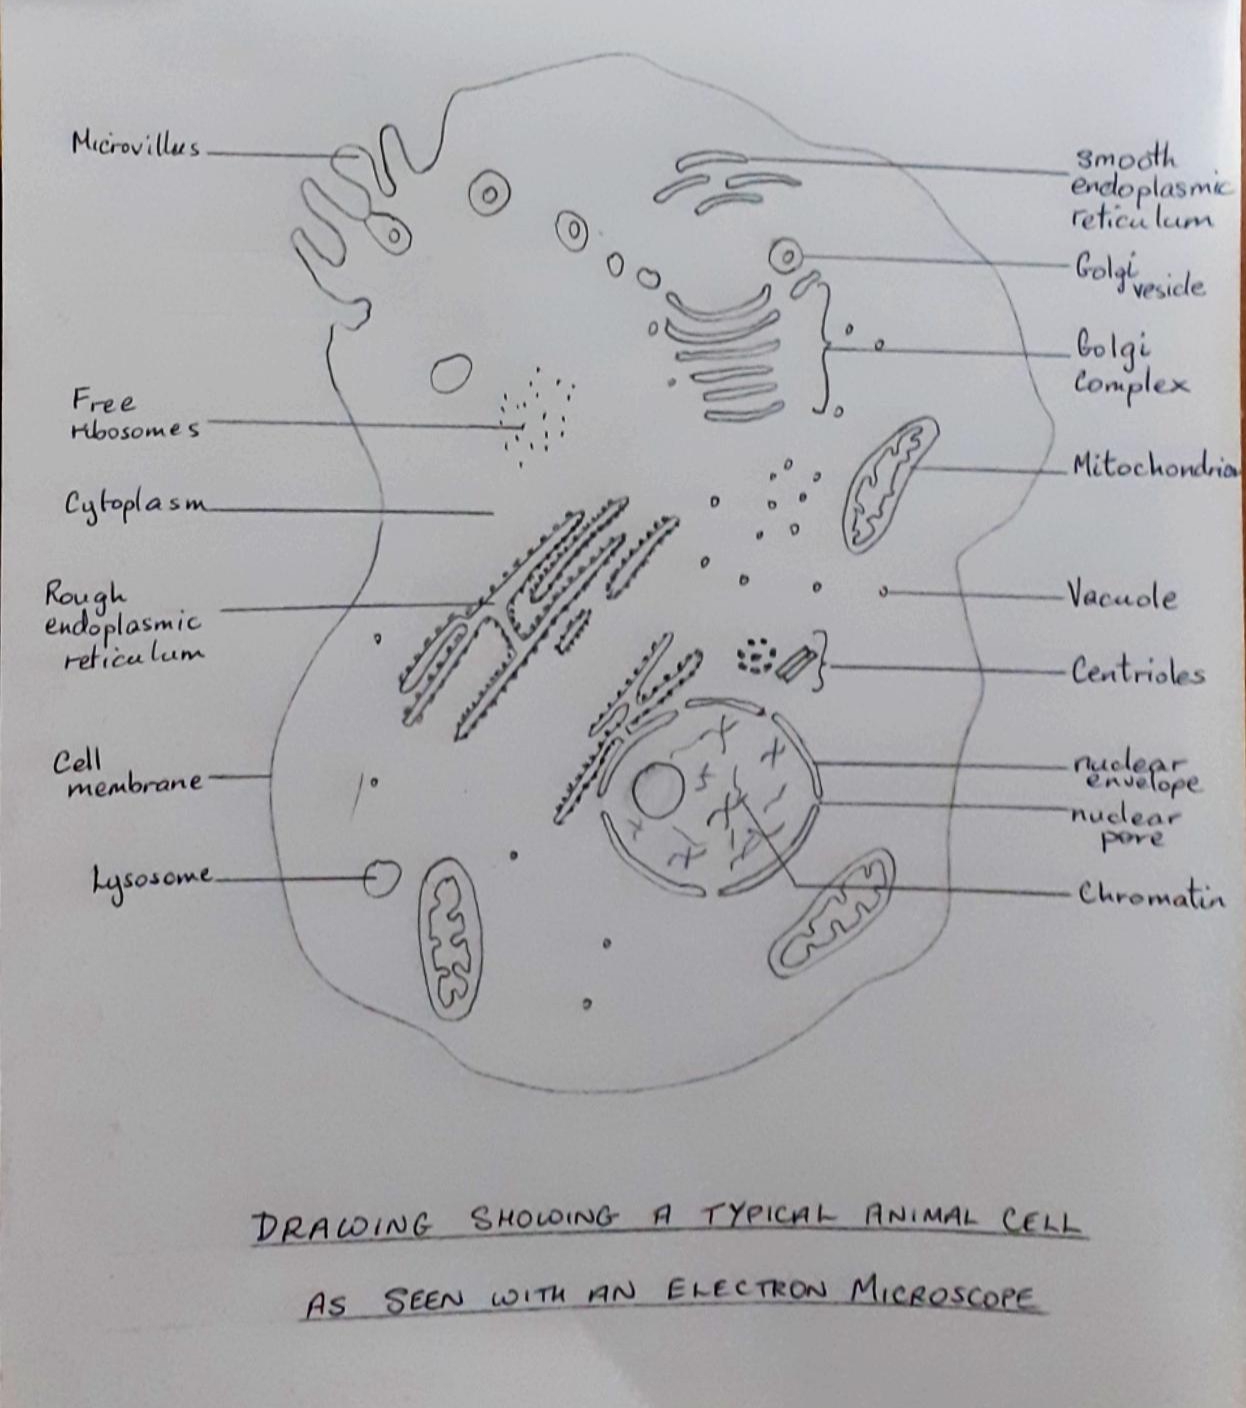 Microvillus
Free
ribosomes
Cytoplasm
Rough
endoplasmic
reticulum
Cell
membrane
Lysosome
Smooth
endoplasmic
reticulum
Golgi
vesicle
Golgi
Complex
Mitochondrion
Vacuole
Centrioles
nuclear
envelope
nuclear
pore
Chromatin
DRAWING SHOWING A TYPICAL ANIMAL CELL
AS SEEN WITH AN ELECTRON MICROSCOPE